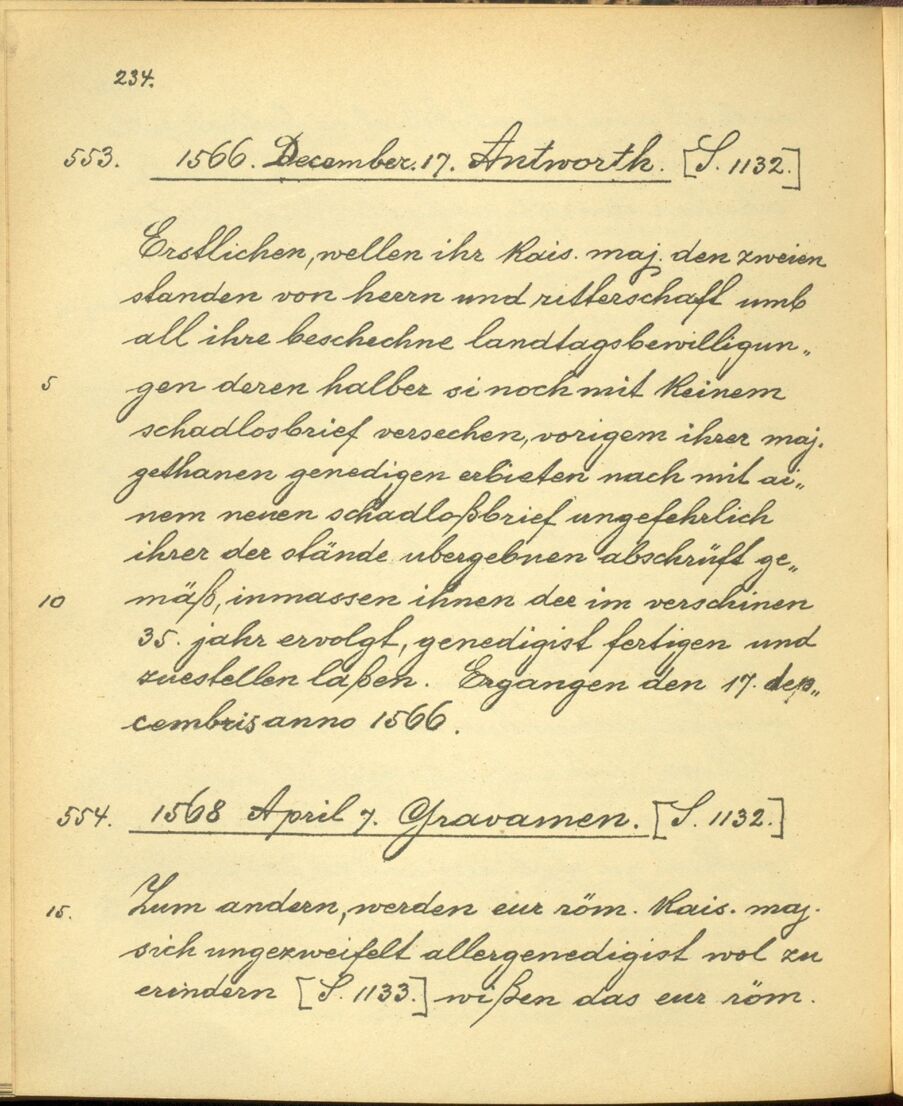 234.
553. 1566. December. 17. Antworth. [S. 1132.]
Erstlichen, wellen ihr kais. maj. den zweien
standen von herrn und ritterschaft umb
all ihre beschechne landtagsbewilligun„
5 gen deren halber si noch mit keinem
schadlosbrief versechen, vorigem ihrer maj.
gethanen genedigen erbieten nach mit ai„
nem neuen schadloßbrief ungefehrlich
ihrer der stände ubergebnen abschrüft ge„
10 mäß, inmassen ihnen der im verschinen
35. jahr ervolgt, genedigist fertigen und
zuestellen laßen. Ergangen den 17. de„
cembris anno 1566.
554. 1568 April 7. Gravamen. [S. 1132.]
15. Zum andern, werden eur röm. kais. maj.
sich ungezweifelt allergenedigist wol zu
erindern [S. 1133.] wißen das eur röm.